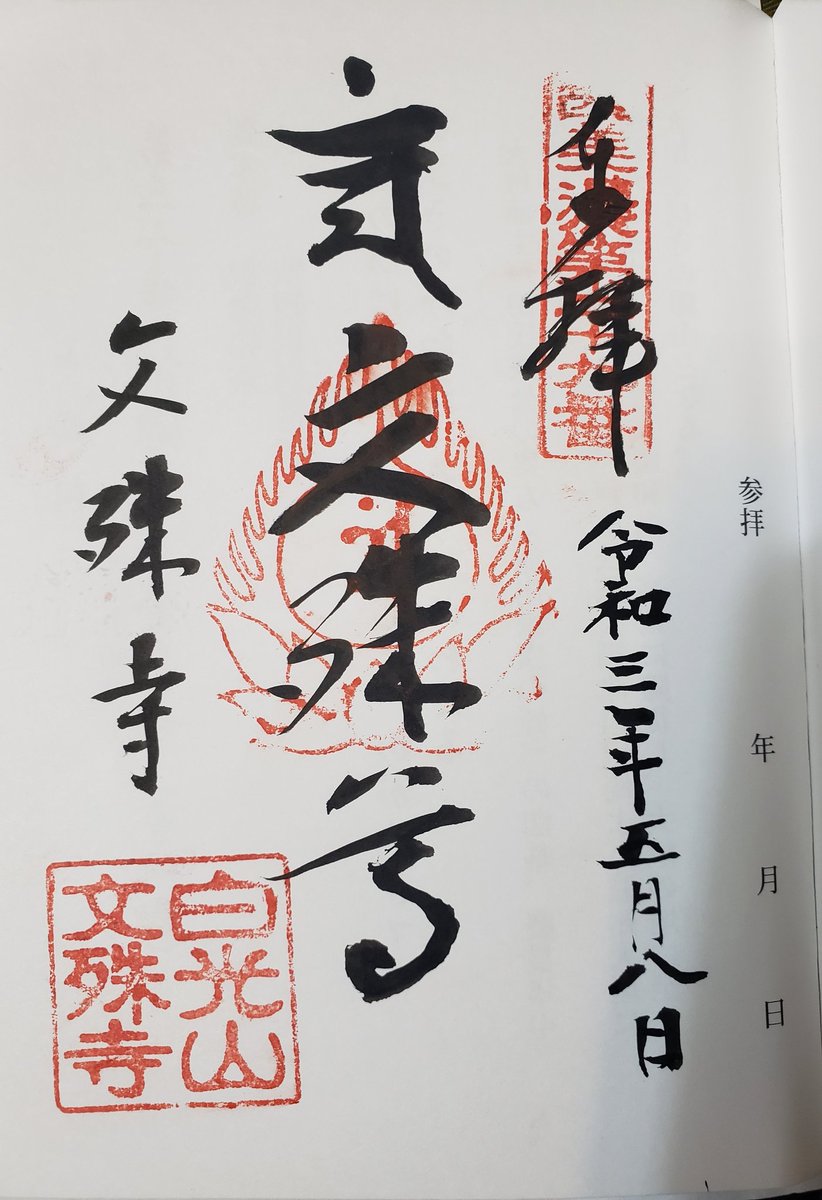 参拝 年 月 日
奉拝
令和三年五月八日
文殊尊
文殊寺
白光山
文殊寺